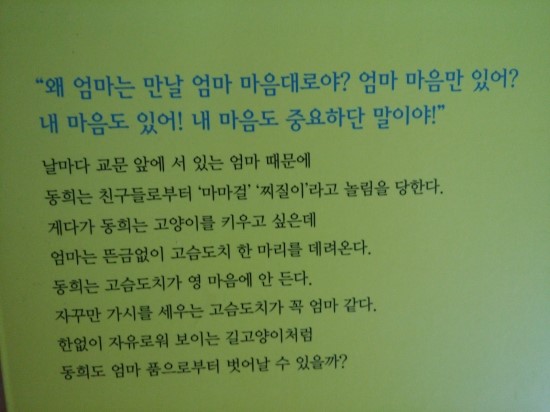 “왜 엄마는 만날 엄마 마음대로야? 엄마 마음만 있어?
내 마음도 있어! 내 마음도 중요하단 말이야!”
날마다 교문 앞에 서 있는 엄마 때문에
동희는 친구들로부터 ‘마마걸’ ‘찌질이’라고 놀림을 당한다.
게다가 동희는 고양이를 키우고 싶은데
엄마는 뜬금없이 고슴도치 한 마리를 데려온다.
동희는 고슴도치가 영 마음에 안 든다.
자꾸만 가시를 세우는 고슴도치가 꼭 엄마 같다.
한없이 자유로워 보이는 길고양이처럼
동희도 엄마 품으로부터 벗어날 수 있을까?